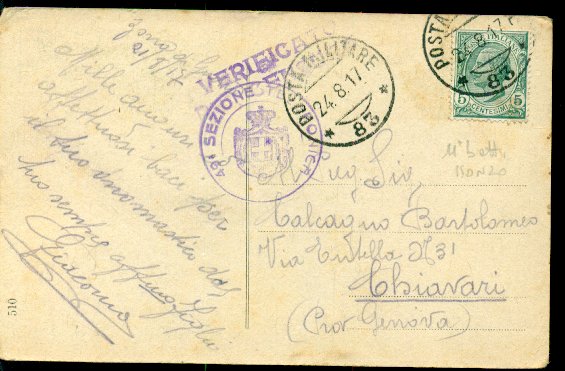 Zona di guerra
21/8/17
Mille auguri
affettuosi baci per
il tuo onomastico dal
tuo sempre affmo figlio
Giacomo
VERIFICATO
49ª SEZIONE TELEFONICA
POSTA MILITARE
24.8.17
83
POSTA MILITARE
24.8.17
83
POSTE ITALIANE
5 CENTESIMI 5
ISONZO
Sig
Calcagno Bartolomeo
Via Entella N 31
Chiavari
(Prov Genova)
510